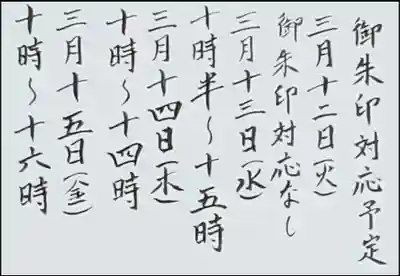 御朱印対応予定
三月十二日(火)
御朱印対応なし
三月十三日(水)
十時半~十五時
三月十四日(木)
十時~十四時
三月十五日(金)
十時~十六時